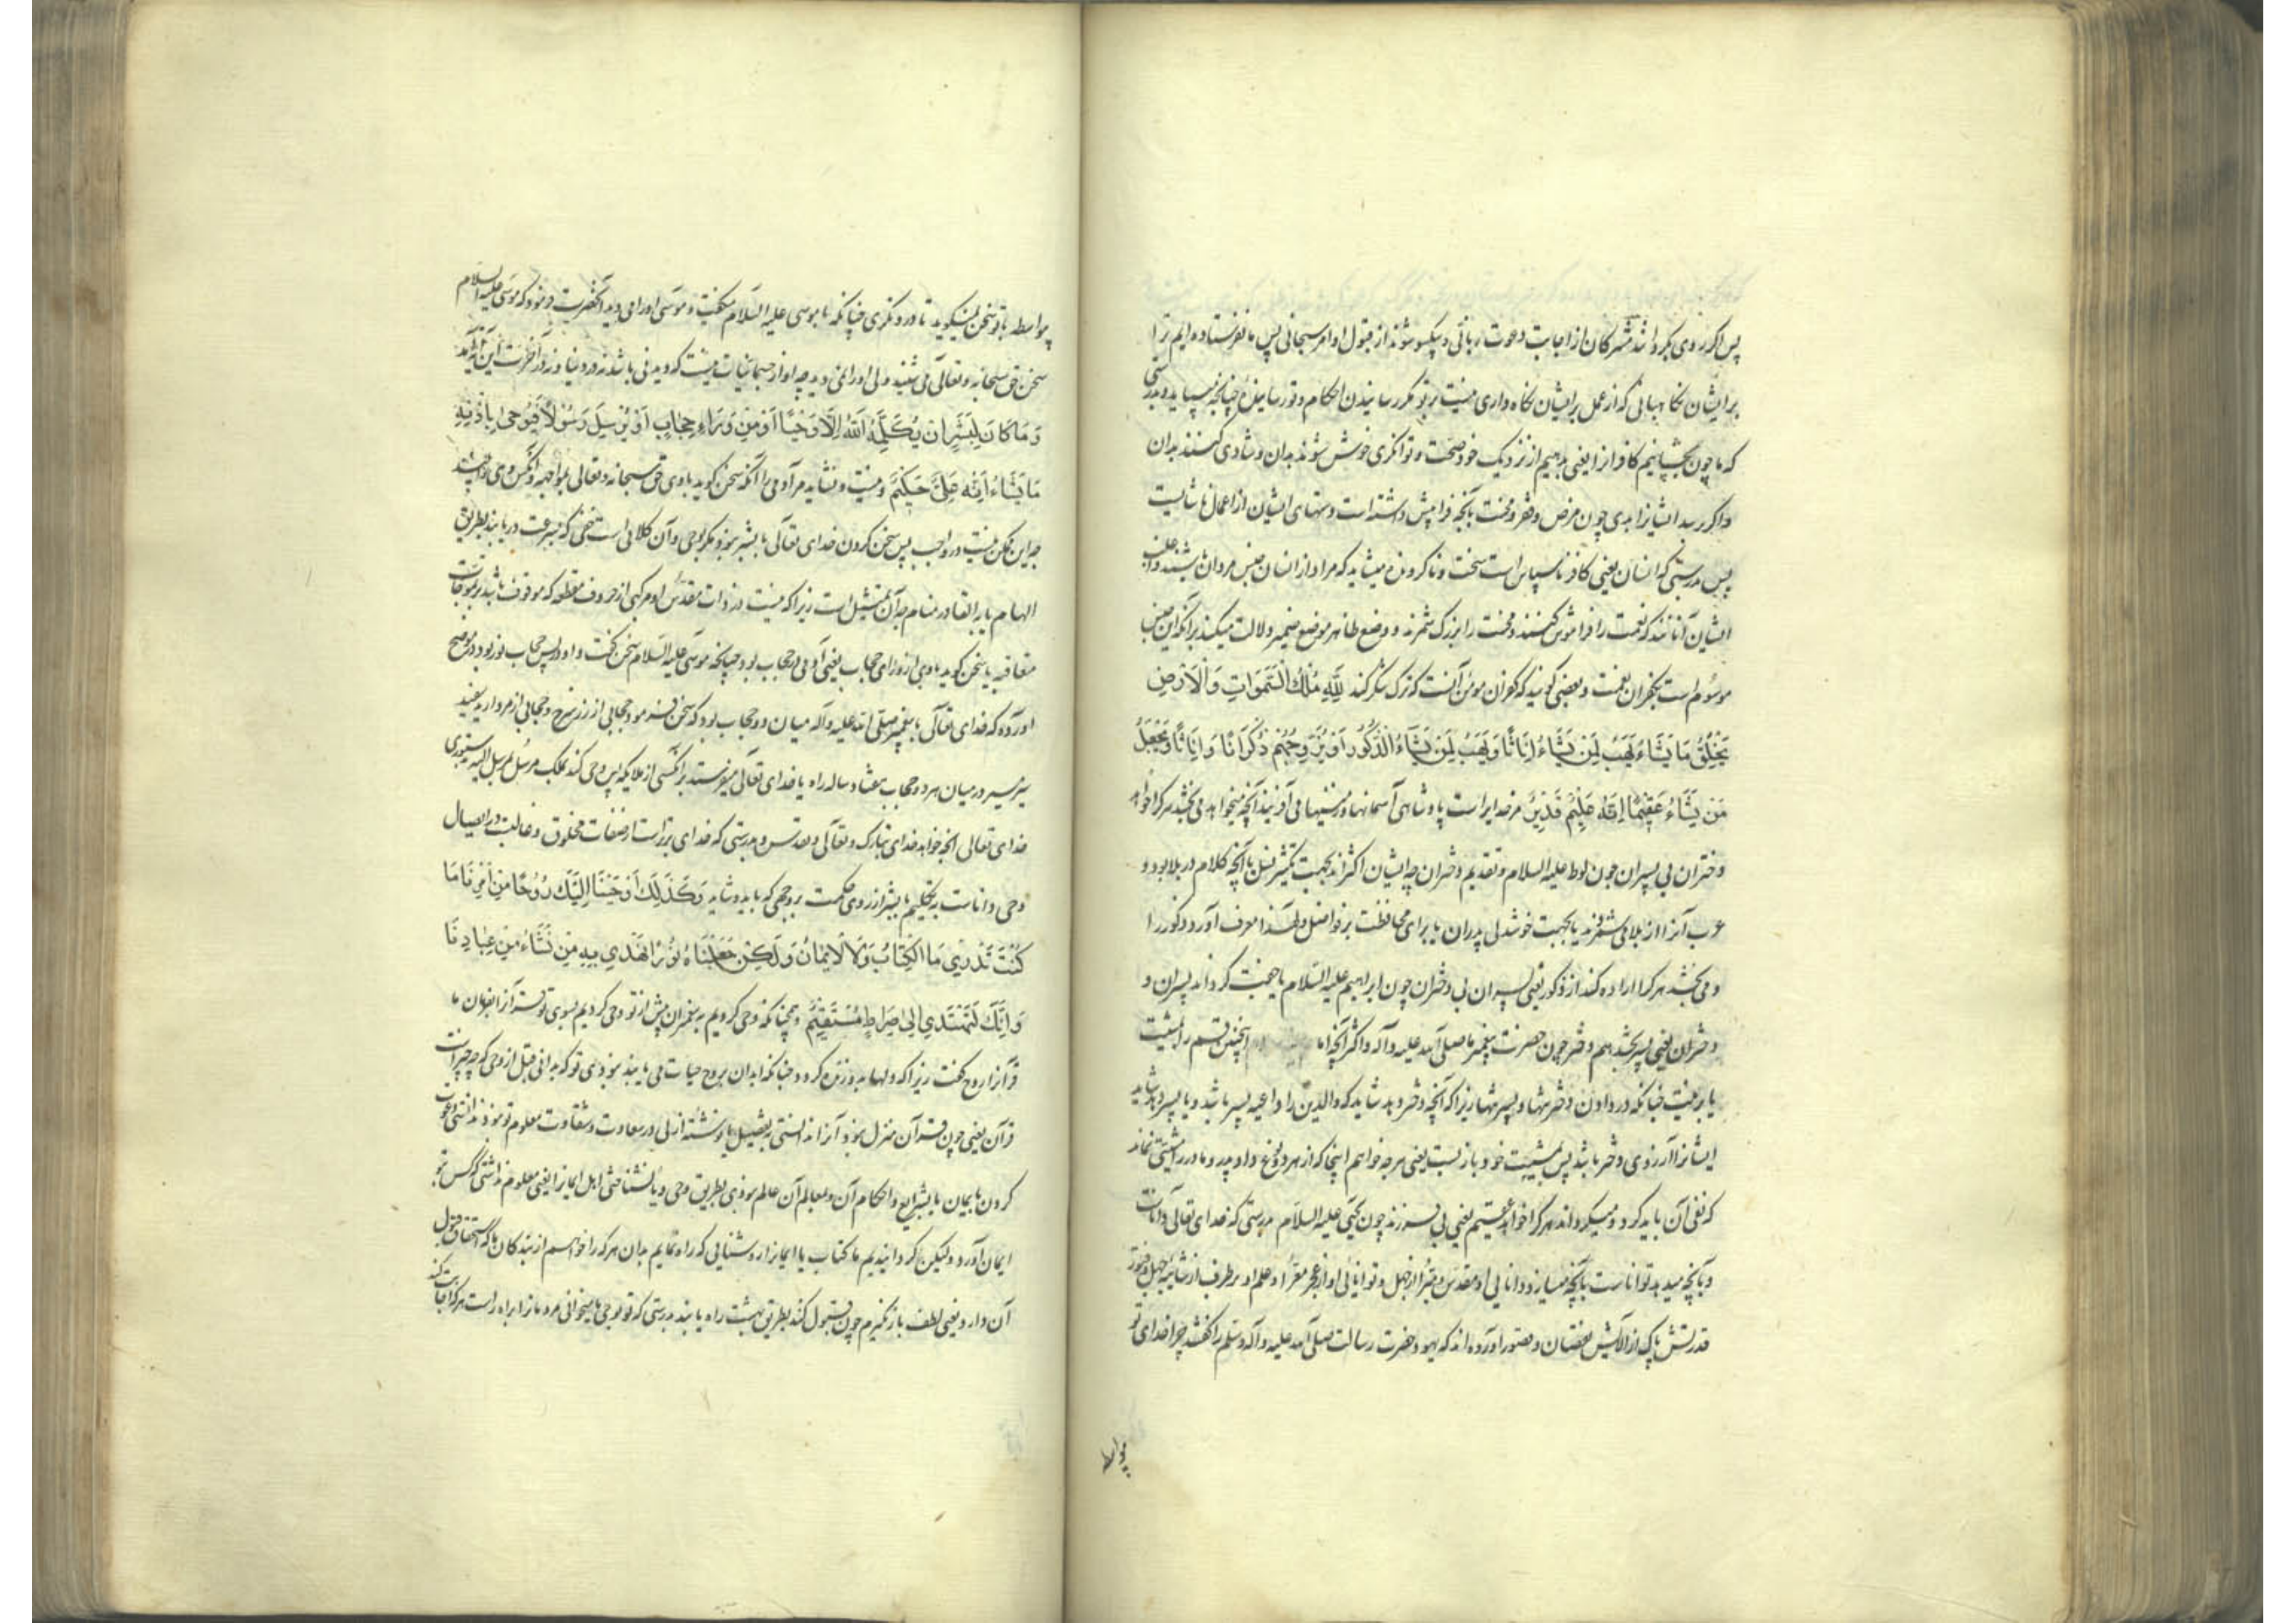 پس اگر روی بگردانند مشرکان از اجابت دعوت ربانی و یکسو شوند از قبول اوامر سبحانی پس ما نفرستاده‌ایم ترا
بر ایشان نگاهبانی که از عمل بد ایشان نگاه داری نیست بر تو مگر رسانیدن احکام و تو رسانیدی چنانچه میباید و بدرستی
که ما چون بچشانیم کافر را یعنی بدهیم از نزدیک خود صحت و توانگری خوش شوند بدان و شادی کنند بدان
و اگر رسد ایشانرا بدی چون مرض و فقر و محنت بآنچه فرا پیش داشته است دستهای ایشان از اعمال ناشایست
پس بدرستی که انسان یعنی کافر ناسپاس است سخت و ناگرونده میشاید که مراد از انسان جنس مردان باشند و اغلب
ایشان آنانند که نعمت را فراموش کنند و محنت را بزرگ شمرند و وضع ظاهر موضع ضمیر دلالت میکند بر آنکه این جنس
موسوم است بکفران نعمت و بعضی گویند که کفران مومن آنست که ترک شکر کند لِلّٰهِ مُلْكُ السَّمٰوَاتِ وَالْاَرْضِ
يَخْلُقُ مَا يَشَاءُ يَهَبُ لِمَنْ يَشَاءُ اِنَاثًا وَيَهَبُ لِمَنْ يَشَاءُ الذُّكُورَ اَوْ يُزَوِّجُهُمْ ذُكْرَانًا وَاِنَاثًا وَيَجْعَلُ
مَنْ يَشَاءُ عَقِيمًا اِنَّهُ عَلِيمٌ قَدِيرٌ مر خدایراست پادشاهی آسمانها و زمینها می آفریند آنچه میخواهد می بخشد هر کرا خواهد
دختران بی پسران چون لوط علیه السلام و تقدیم دختران چه ایشان اکثراند بجهت تکثیر نسل یا آنچه کلام در بلا بود و
عرب آنرا از بلا می شمرند یا بجهت خوشدلی پدران یا برای محافظت بر فواصل و لهذا معرف آورد ذکور را
و می بخشد هر کرا اراده کند از ذکور یعنی پسران بی دختران چون ابراهیم علیه السلام یا جمع کرداند پسران و
دختران یعنی پسر بخشد هم دختر چون حضرت پیغمبر ما صلی الله علیه و آله و اکثر آنچه اما همچنین قسم را بمشیت
یا برعنیت چنانکه در دادن دختر تنها و پسر تنها زیرا که آنچه دختر دهد شاید که والدین را داعیه پسر باشد و یا پسر دهد شاید
ایشانرا آرزوی دختر باشد پس بمشیت خود باز بست یعنی هر چه خواهم اینجا که از هر دو نوع داد پدر و مادر را مشیتی نماند
که نفی آن باید کرد و میگرداند هر کرا خواهد عقیم یعنی بی فرزند چون یحیی علیه السلام بدرستی که خدای تعالی داناست
و بآنچه میدهد تواناست بآنچه میسازد و دانایی او مقدس و مبرا از جهل و توانائی او از عجز معرا و علم او بر طرف از شایبه جهل و فتور
قدرتش پاک از آلایش نقصان و قصور آورده‌اند که یهود حضرت رسالت صلی الله علیه و آله و سلم را گفتند چرا خدای تو
بواسطه
بواسطه با تو سخن نمیگوید تا در و نگری چنانکه با موسی علیه السلام میگفت و موسی او را می دید آنحضرت فرمود که موسی علیه السلام
سخن حق سبحانه و تعالی می شنید ولی او را نمی دید چه او از جسمانیات نیست که دیدنی باشد نه در دنیا و نه در آخرت این آیه آمد
وَمَا كَانَ لِبَشَرٍ اَنْ يُكَلِّمَهُ اللّٰهُ اِلَّا وَحْيًا اَوْ مِنْ وَرَاءِ حِجَابٍ اَوْ يُرْسِلَ رَسُولًا فَيُوحِيَ بِاِذْنِهِ
مَا يَشَاءُ اِنَّهُ عَلِيٌّ حَكِيمٌ و نیست و نشاید مر آدمی را آنکه سخن گوید با وی حق سبحانه و تعالی بمواجهه و آنکس وی را بیند
چه این ممکن نیست در واجب پس سخن کردن خدای تعالی با بشر نبود مگر بوحی و آن کلامی است خفی که بسرعت دریابند بطریق
الهام یا به القا در منام چه آن تمثیل است زیرا که نیست در ذات مقدس او مرکبی از حروف مقطعه که موقوف باشد بر تموجات
متعاقبه یا سخن گوید با وی از ورای حجاب یعنی آدمی در حجاب بود چنانکه موسی علیه السلام سخن گفت و او در پس حجاب نور بود در موضح
آورده که خدای تعالی با پیغمبر صلی الله علیه و آله میان دو حجاب بود که سخن فرمود حجابی از زر سرخ و حجابی از مروارید سفید
سیر مسیر در میان هر دو حجاب هفتاد ساله راه یا خدای تعالی میفرستد بر آنکسی از ملایکه پس وحی کند ملک مرسل بمرسل الیه بدستوری
خدای تعالی آنچه خواهد خدای تبارک و تعالی و تقدس و بدرستی که خدای برتر است از صفات مخلوق و غالبست در ایصال
وحی و داناست به تکلیم با بشر از روی حکمت بر وجهی که باید و شاید وَكَذٰلِكَ اَوْحَيْنَا اِلَيْكَ رُوحًا مِنْ اَمْرِنَا مَا
كُنْتَ تَدْرِي مَا الْكِتَابُ وَلَا الْاِيمَانُ وَلٰكِنْ جَعَلْنَاهُ نُورًا نَهْدِي بِهِ مَنْ نَشَاءُ مِنْ عِبَادِنَا
وَاِنَّكَ لَتَهْتَدِي اِلٰى صِرَاطٍ مُسْتَقِيمٍ و همچنانکه وحی کردیم به پیغمبران پیش از تو وحی کردیم بسوی تو قرآنرا بفرمان ما
قرآنرا روح گفت زیرا که دلها بدو زنده گردد چنانکه ابدان بروح حیات می یابند نبودی تو که بدانی قبل از وحی که چه چیز است
قرآن یعنی چون قرآن منزل نبود آنرا ندانستی به تفصیل یا نوشته ازلی در سعادت و شقاوت معلوم تو نبود ندانستی دعوت
کردن بایمان یا بشرایع و احکام آن و بمعالم آن عالم نبودی بطریق وحی و یا نشناختی اهل ایمانرا یعنی معلوم نداشتی که کس بتو
ایمان آورد و لیکن گردانیدیم ما کتاب یا ایمانرا روشنایی که راه نمایم بدان هر که را خواهیم از بندگان ما که استحقاق قبول
آن دارد یعنی لطف باز نگیرم چون قبول کند بطریق بهشت راه یابند بدرستی که تو بوحی ما میخوانی مردمانرا براه راست هر که اجابت کند